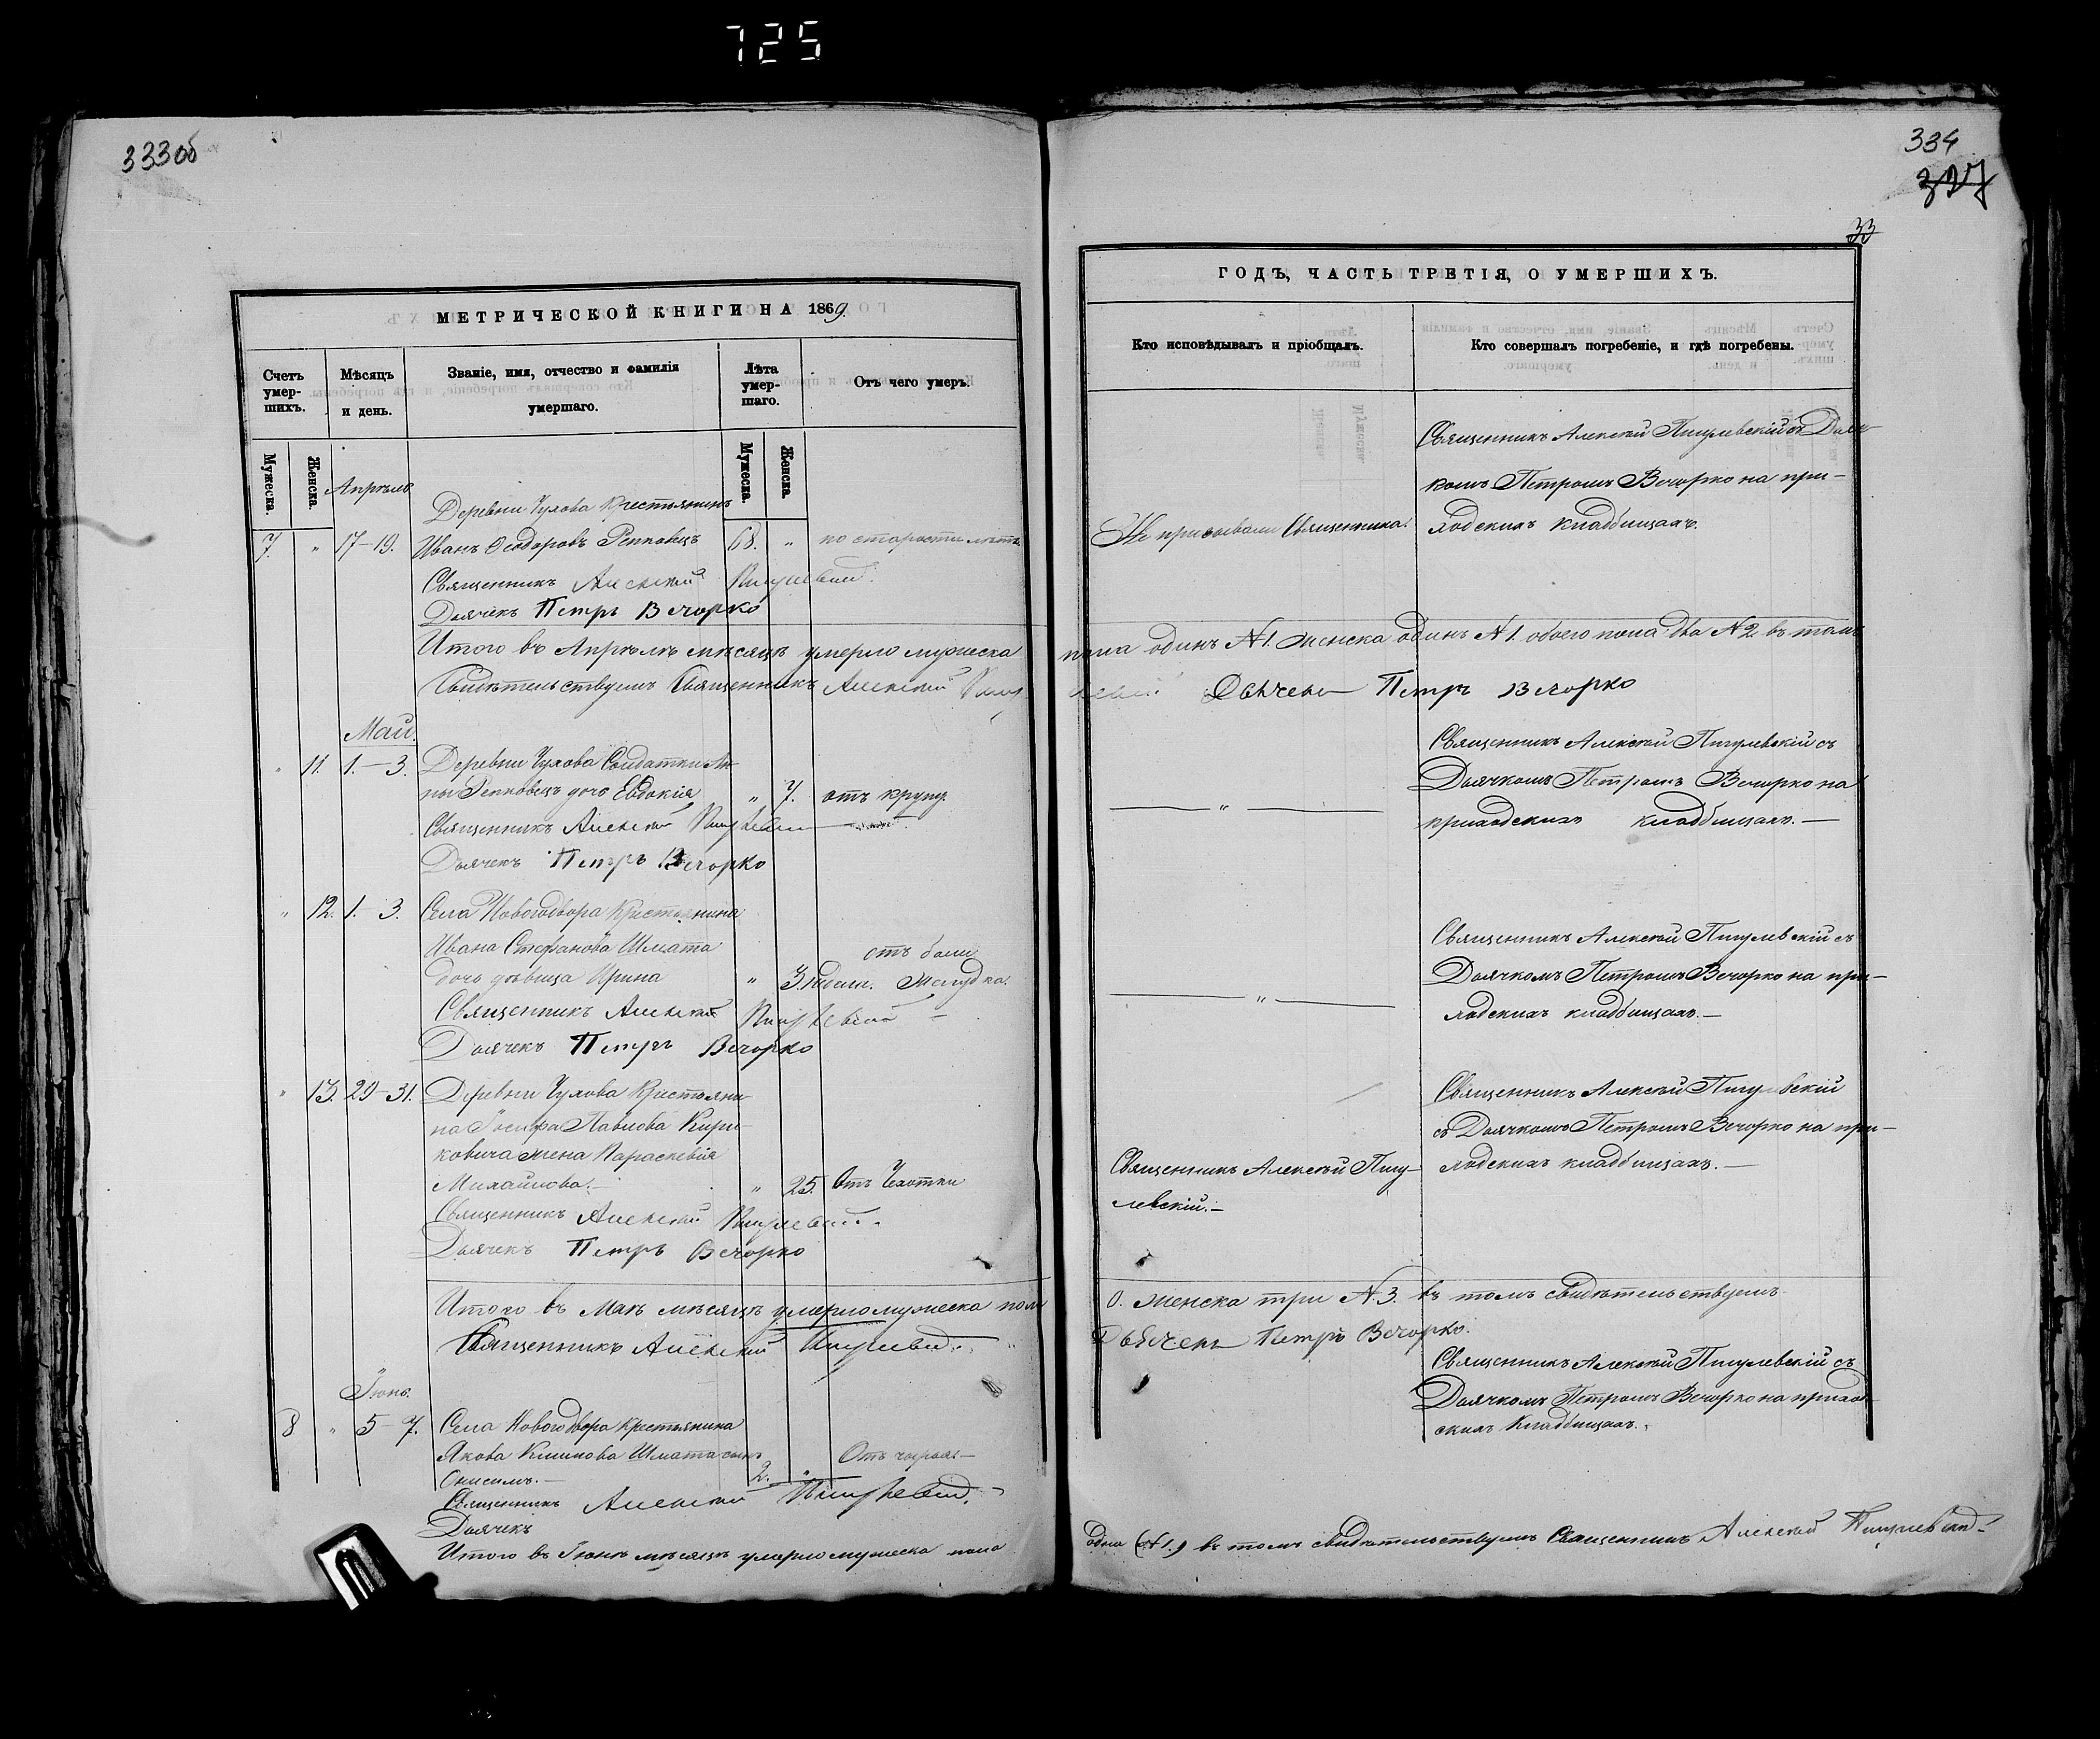 725
333об
МЕТРИЧЕСКОЙ КНИГИ НА 1869
Счетъ умер-шихъ.
Мѣсяцъ и день.
Званіе, имя, отчество и фамилія умершаго.
Лѣта умер-шаго.
Отъ чего умеръ.
Мужеска.
Женска.
Мужеска.
Женска.
Апрѣль
Деревни Чухова Крестьянинъ
7. " 17-19. Иванъ Ѳеодоровъ Репповецъ 68. " по старости лѣтъ
Священникъ Алексѣй Пигулевскій.
Дьячекъ Петръ Вечорко
Итого въ Апрѣлѣ мѣсяцѣ умерло мужеска
Свидѣтельствуемъ Священникъ Алексѣй Пигу
Май.
" 11. 1.-3. Деревни Чухова Солдатки Ан-
ны Реповецъ дочь Евдокія " 7. отъ крупу.
Священникъ Алексѣй Пигулевскій
Дьячекъ Петръ Вечорко
" 12. 1.-3. Села Новогодвора Крестьянина
Ивана Стефанова Шмата отъ боли
дочь дѣвица Ирина " 3. желудка.
Священникъ Алексѣй Пигулевскій
Дьячекъ Петръ Вечорко
" 13. 29-31. Деревни Чухова Крестьяни-
на Іосифа Павлова Кири-
ковича жена Параскевія
Михайлова.- " 25. Отъ Чахотки
Священникъ Алексѣй Пигулевскій.
Дьячекъ Петръ Вечорко
Итого въ Маѣ мѣсяцѣ умерло мужеска пола
Священникъ Алексѣй Пигулевскій.
Іюнь.
8 " 5-7. Села Новогодвора Крестьянина
Якова Климова Шмата сынъ Отъ чирья.-
Онисимъ.- 2. "
Священникъ Алексѣй Пигулевскій.
Дьячекъ
Итого въ Іюнѣ мѣсяцѣ умерло мужеска пола
334
327
33
ГОДЪ, ЧАСТЬ ТРЕТІЯ, О УМЕРШИХЪ.
Кто исповѣдывалъ и пріобщалъ.
Кто совершалъ погребеніе, и гдѣ погребены.
Священникъ Алексѣй Пигулевскій съ Дьяч-
комъ Петромъ Вечорко на при-
Не призывали Священника. ходскихъ кладбищахъ.
пола одинъ №1. женска одинъ №1. обоего пола два №2. въ томъ
левскій Дьячекъ Петръ Вечорко
Священникъ Алексѣй Пигулевскій съ
Дьячкомъ Петромъ Вечорко на
— " — приходскихъ кладбищахъ.—
Священникъ Алексѣй Пигулевскій съ
Дьячкомъ Петромъ Вечорко на при-
— " — ходскихъ кладбищахъ.—
Священникъ Алексѣй Пигулевскій
съ Дьячкомъ Петромъ Вечорко на при-
Священникъ Алексѣй Пигу- ходскихъ кладбищахъ.—
левскій.—
0. женска три №3. въ томъ свидѣтельствуемъ
Дьячекъ Петръ Вечорко.
Священникъ Алексѣй Пигулевскій съ
Дьячкомъ Петромъ Вечорко на приход-
скихъ Кладбищахъ.
одна (№1.) въ томъ свидѣтельствуемъ Священникъ Алексѣй Пигулевскій